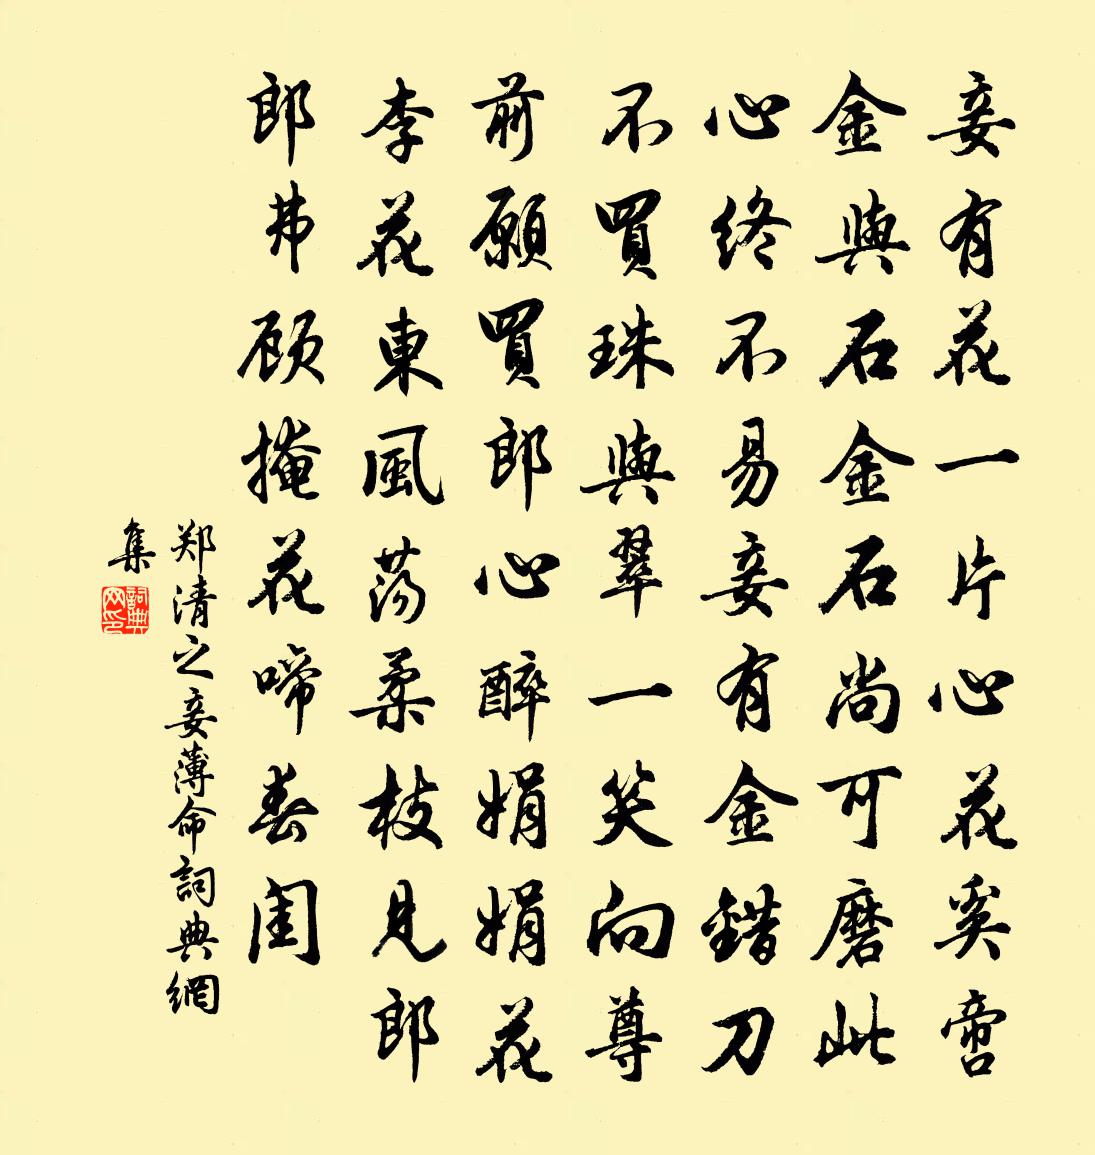 妾有花一片心花奚啻
金與石金石尚可磨此
心終不易妾有金錯刀
不買珠與翠一笑向尊
前願買郎心醉娟娟花
李花東風蕩柔枝見郎
郎弗顾掩花啼春闺
郑清之妾薄命詞典網
集
詞典网印